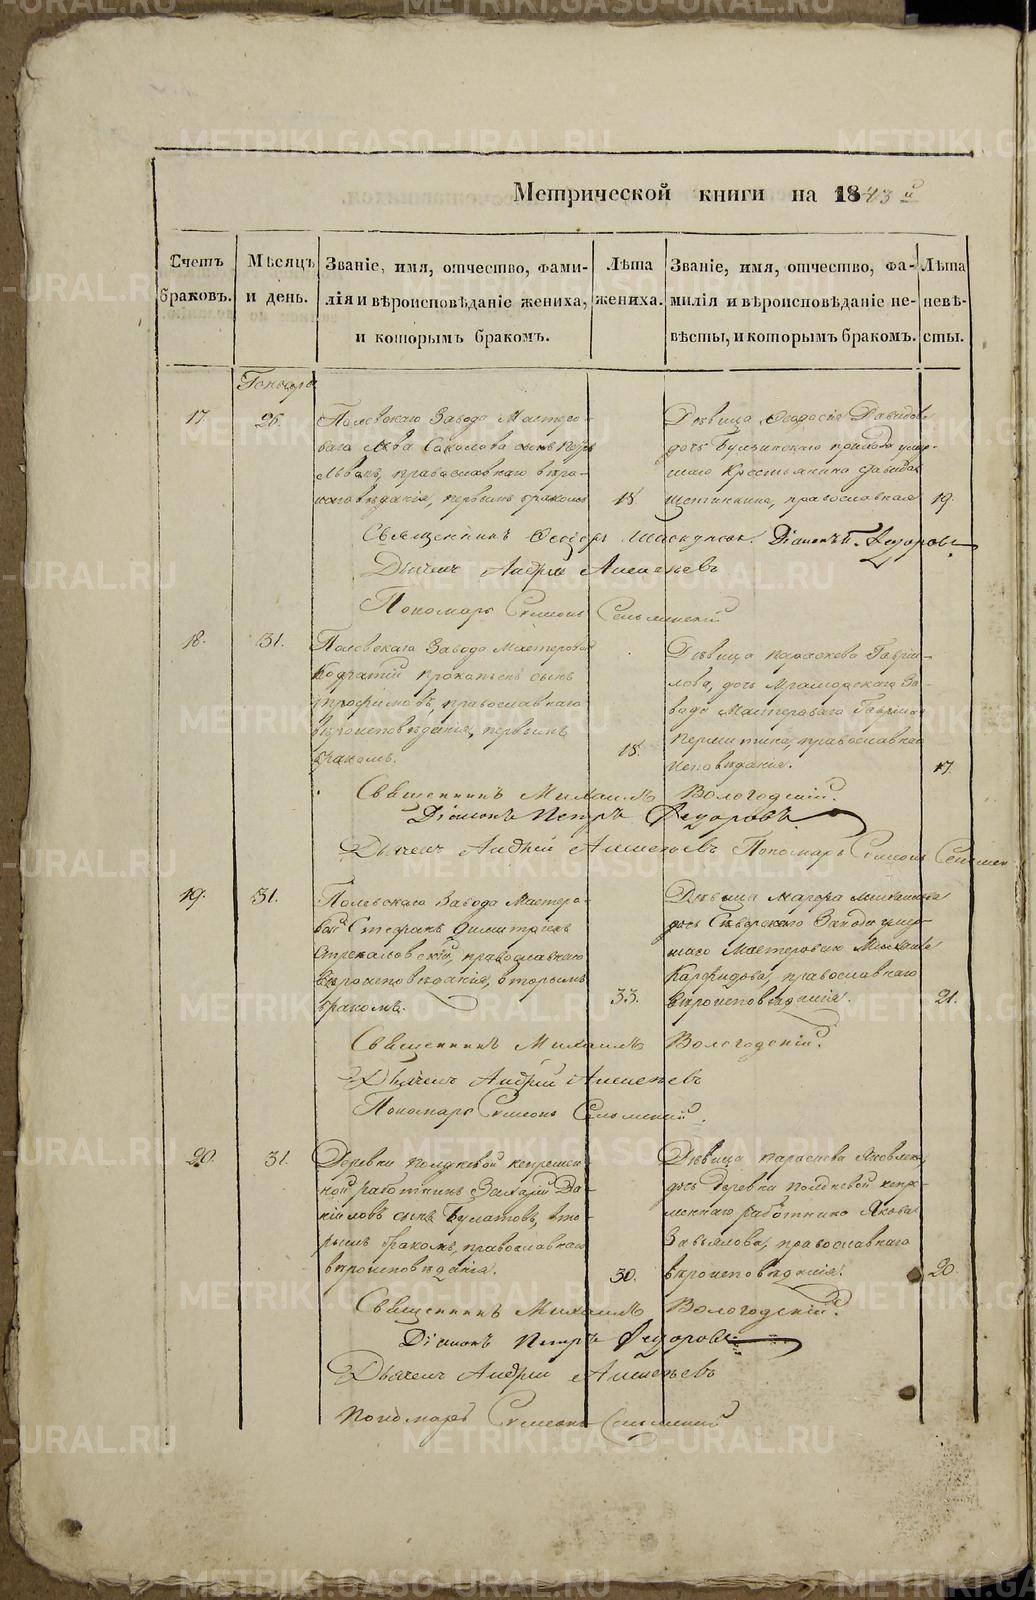 Метрической книги на 1843 й
Счетъ браковъ.
Мѣсяцъ и день.
Званіе, имя, отчество, фами-
лія и вѣроисповѣданіе жениха,
и которымъ бракомъ.
Лѣта жениха.
Званіе, имя, отчество, фа-
милія и вѣроисповѣданіе не-
вѣсты, и которымъ бракомъ.
Лѣта невѣ-
сты.
Генваря
17.
26.
Полевскаго Завода Мастеро-
ваго Льва Соколова сынъ Петръ
Львовъ, православнаго вѣро-
исповѣданія, первымъ бракомъ
18
Дѣвица Ѳеодосія Давидова
дочь прихода умер-
шаго Крестьянина Давида
Щетинкина, православная
19.
Священникъ Ѳеодоръ Діаконъ П. Ѳедоровъ
Дьячекъ Андрей
Пономарь Симеонъ
18.
31.
Полевскаго Завода Мастеровой
Прокопьевъ сынъ
Трофимовъ, православнаго
вѣроисповѣданія, первымъ
бракомъ.
18.
Дѣвица Параскева Гаврі-
лова, дочь Мраморскаго За-
вода Мастероваго Гавріила
православнаго
исповѣданія.
17.
Священникъ Михаилъ Вологодскій.
Діаконъ Петръ Ѳедоровъ
Дьячекъ Андрей Пономарь Симеонъ
19.
31.
Полевскаго Завода Мастеро-
вой Стефанъ Димитріевъ
Стрекаловскій, православнаго
вѣроисповѣданія, вторымъ
бракомъ.
33.
Дѣвица Марфа Михайлова
дочь Сѣверскаго Завода умер-
шаго Мастероваго Михаила
Карфидова, православнаго
вѣроисповѣданія.
21.
Священникъ Михаилъ Вологодскій.
Дьячекъ Андрей
Пономарь Симеонъ
20.
31.
Деревни Полдневой непремѣн-
ной работникъ Захарій
сынъ Булатовъ, вто-
рымъ бракомъ, православнаго
вѣроисповѣданія.
30.
Дѣвица Параскева Яковлева
дочь Деревни Полдневой непре-
мѣннаго работника Якова
Завьялова, православнаго
вѣроисповѣданія.
20
Священникъ Михаилъ Вологодскій.
Діаконъ Петръ Ѳедоровъ
Дьячекъ Андрей
Пономарь Симеонъ
METRIKI.GASO-URAL.RU